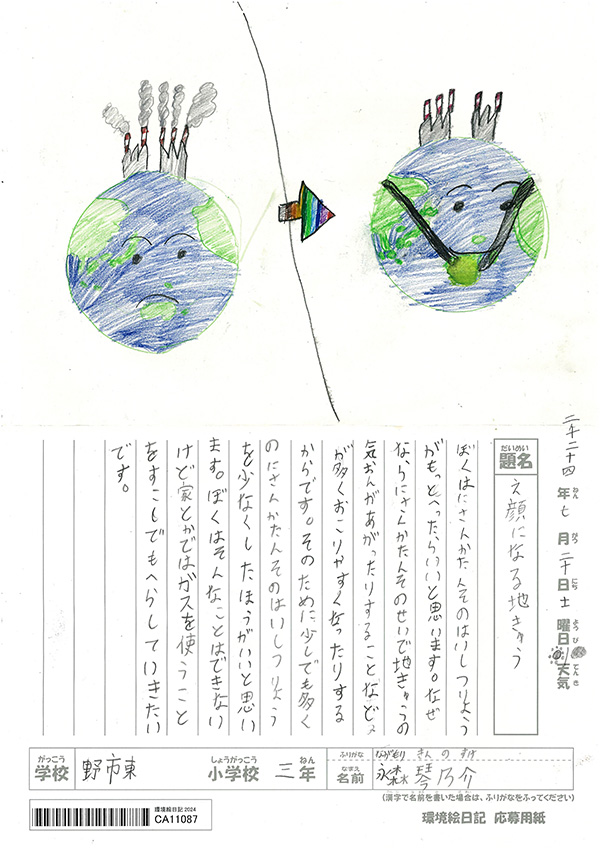 二千二十四年七月二十日土曜日天気
ねん がつ にち ようび てんき
だいめい
題名
え顔になる地きゅう
ぼくはにさんかたんそのはいしつりょう
がもっとへったらいいと思います。なぜ
ならにさんかたんそのせいで地きゅうの
気おんがあがったりすることなど、
が多くおこりやすくなったりする
からです。そのために少しでも多く
のにさんかたんそのはいしつりょう
を少なくしたほうがいいと思い
ます。ぼくはそんなことはできない
けど家とかではガスを使うこと
をすこしでもへらしていきたい
です。
がっこう しょうがっこう ねん ふりがな ながもり きんのすけ
学校 野市東 小学校 三年 なまえ 名前 永森 琴乃介
(漢字で名前を書いた場合は、ふりがなをふってください)
環境絵日記 2024
CA11087
環境絵日記 応募用紙